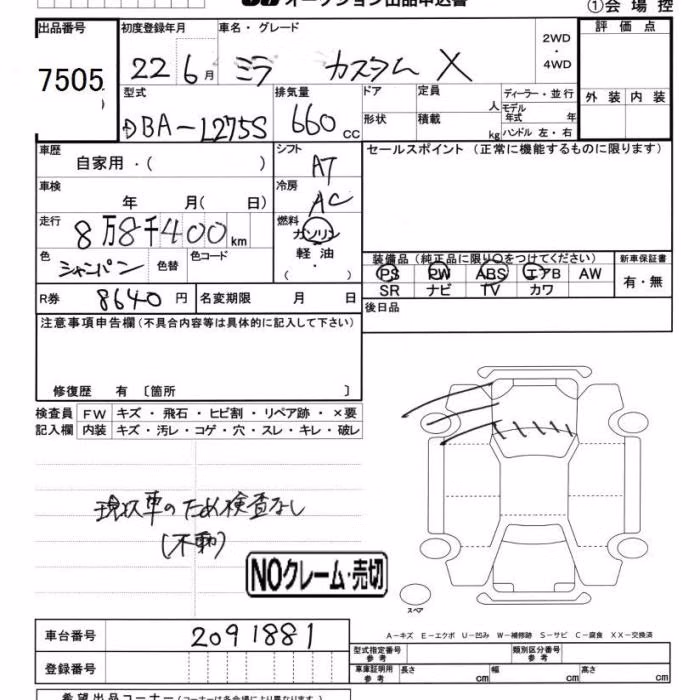 オークション出品申込書
①会場控
出品番号 初度登録年月 車名・グレード 2WD・4WD 評価点
7505 22 6月 ミラ カスタム X
型式 排気量 ドア 定員 人 ディーラー・並行 外装 内装
DBA-L275S 660cc 形状 積載 kg モデル年式 年 ハンドル 左・右
車歴 自家用・( ) シフト AT セールスポイント (正常に機能するものに限ります)
車検 年 月( 日) 冷房 AC
走行 8万8千400km 燃料 ガソリン
軽油・( )
色 シャンパン 色替 色コード
装備品(純正品に限り○をつけてください) 新車保証書
PS PW ABS エアB AW 有・無
SR ナビ TV カワ
R券 8640円 名変期限 月 日
後日品
注意事項申告欄(不具合内容等は具体的に記入して下さい)
修復歴 有 〔箇所 〕
検査員 FW キズ・飛石・ヒビ割・リペア跡・×要
記入欄 内装 キズ・汚レ・コゲ・穴・スレ・キレ・破レ
現状車のため検査なし
(不動)
NOクレーム・売切
スペア
A-キズ E-エクボ U-凹み W-補修跡 S-サビ C-腐食 XX-交換済
車台番号 2091881
型式指定番号 参考 類別区分番号 参考
登録番号
車庫証明用 参考 長さ cm 幅 cm 高さ cm
希望出品コーナー(コーナーは各会場により異なります)